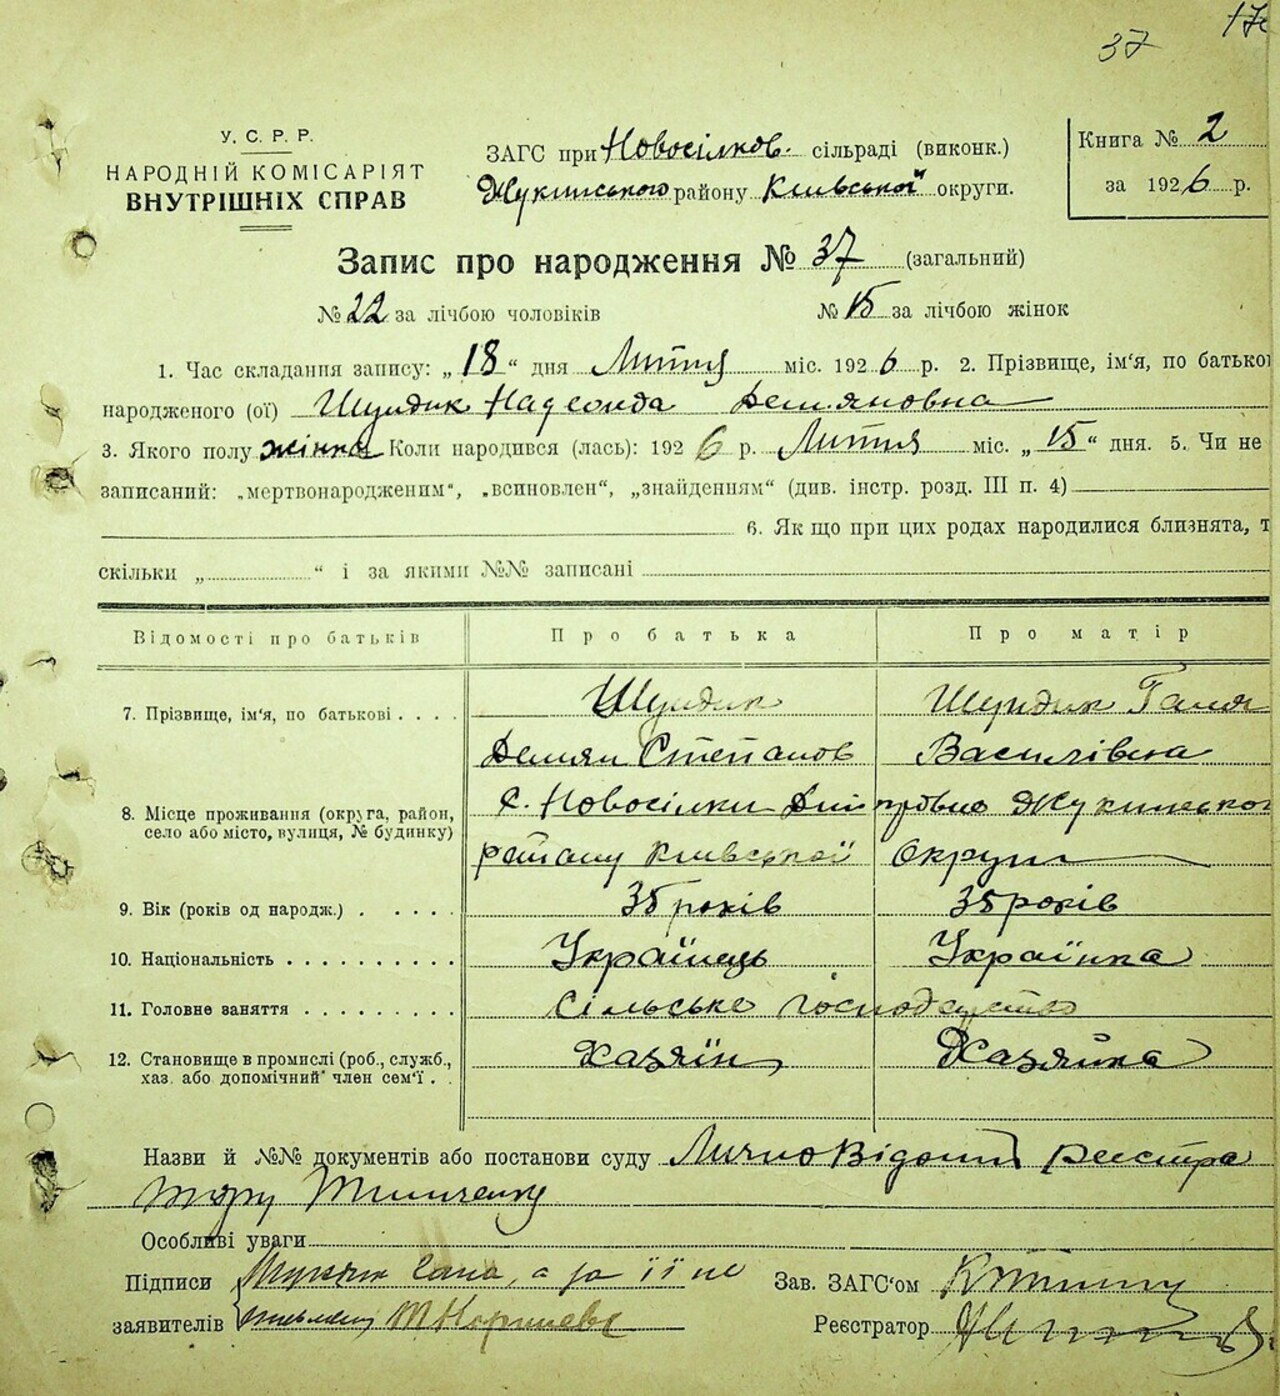 37
У. С. Р. Р.
НАРОДНІЙ КОМІСАРІЯТ
ВНУТРІШНІХ СПРАВ
ЗАГС при Новосілков. сільраді (виконк.)
Жукинського району Київської округи.
Книга № 2
за 1926 р.
Запис про народження № 37 (загальний)
№ 22 за лічбою чоловіків № 15 за лічбою жінок
1. Час складання запису: „18“ дня Лютня міс. 1926 р. 2. Прізвище, ім‘я, по батько
народженого (ої) Шундик Надеонда Демяновна
3. Якого полу жінка Коли народився (лась): 1926 р. Лютня міс. „15“ дня. 5. Чи не
записаний: „мертвонародженим“, „всиновлен“, „знайденням“ (див. інстр. розд. III п. 4)
6. Як що при цих родах народилися близнята, т
скільки „ “ і за якими №№ записані
Відомості про батьків Про батька Про матір
7. Прізвище, ім‘я, по батькові . . . . Шундик Шундик Ганя
Демян Степанов Василівна
8. Місце проживання (округа, район, село або місто, вулиця, № будинку) с. Новосілки Дніпровно Жукинського
району Київської округи
9. Вік (років од народж.) . . . . . 35 років 35 років
10. Національність . . . . . . . . . . Українець Українка
11. Головне заняття . . . . . . . . . Сільське господарство
12. Становище в промислі (роб., служб., хаз. або допомічний член сем‘ї . . Хазяїн Хазяйка
Назви й №№ документів або постанови суду Лично Відомий реєстра
тору
Особливі уваги
Підписи а за її не
заявителів
Зав. ЗАГС‘ом
Реєстратор